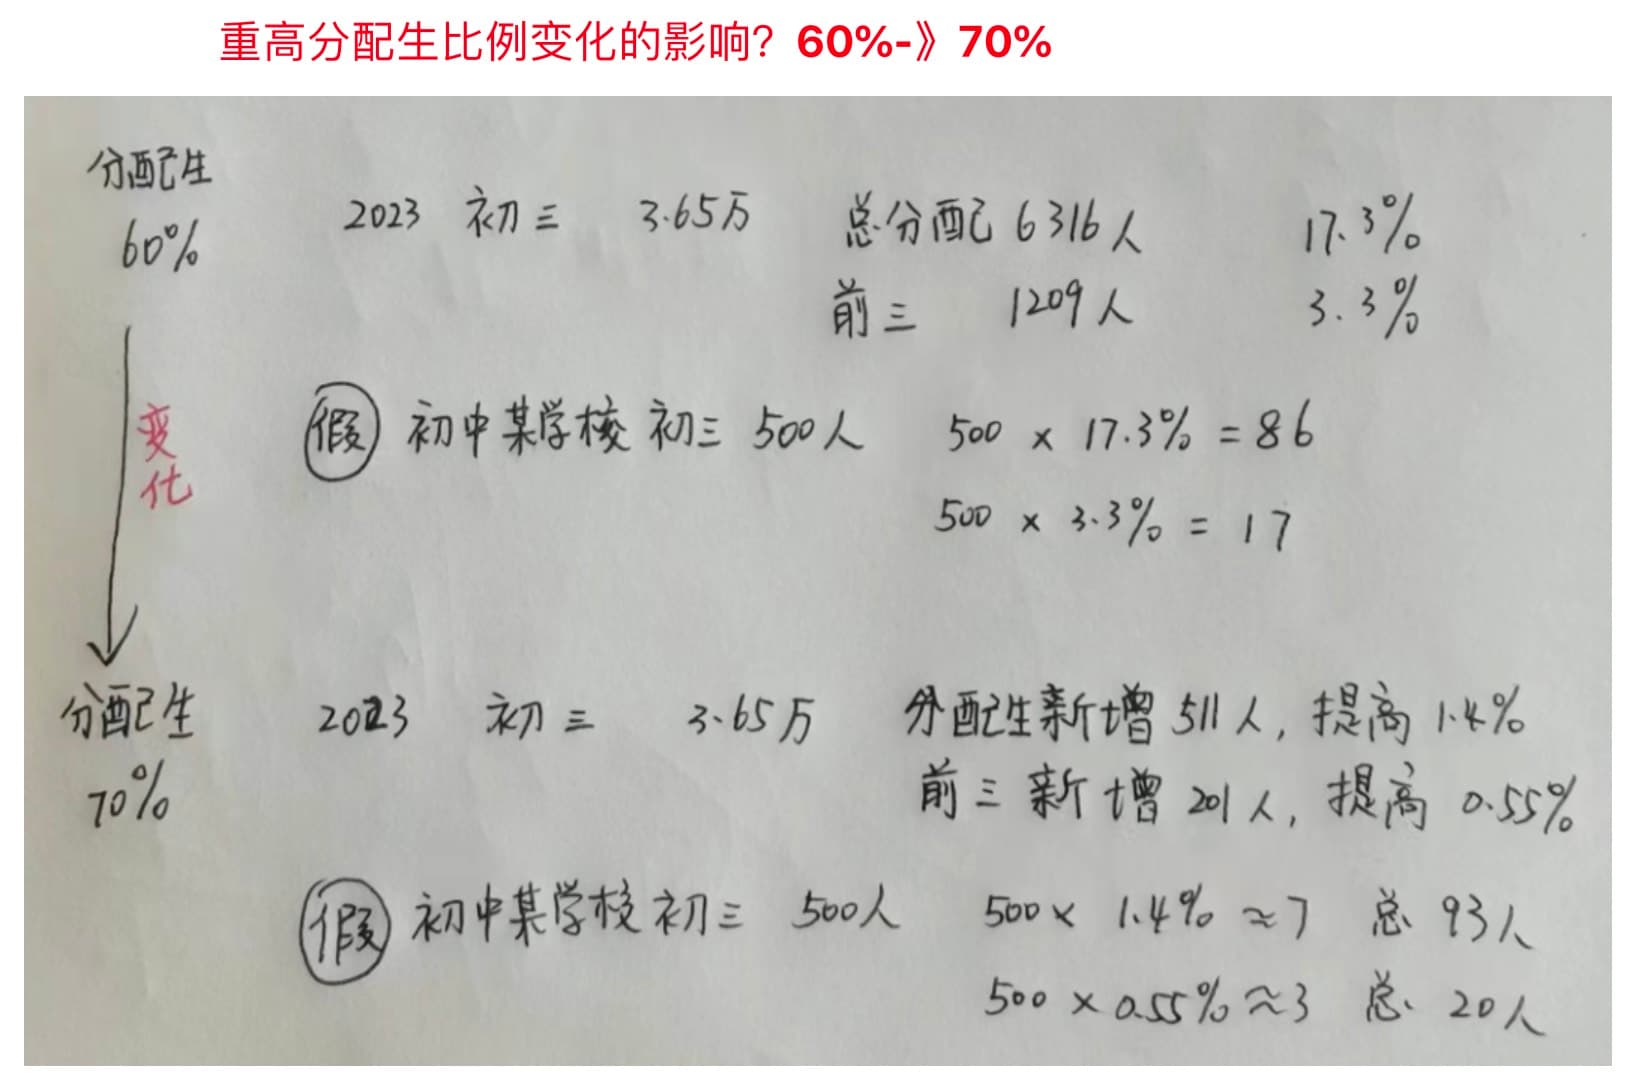 重高分配生比例变化的影响？60%-》70%
分配生
60%
2023 初三 3.65万 总分配 6316人 17.3%
前三 1209人 3.3%
变化
假 初中某学校 初三 500人 500 × 17.3% = 86
500 × 3.3% = 17
分配生
70%
2023 初三 3.65万 分配生新增 511人, 提高 1.4%
前三新增 201人, 提高 0.55%
假 初中某学校 初三 500人 500 × 1.4% ≈ 7 总 93人
500 × 0.55% ≈ 3 总 20人